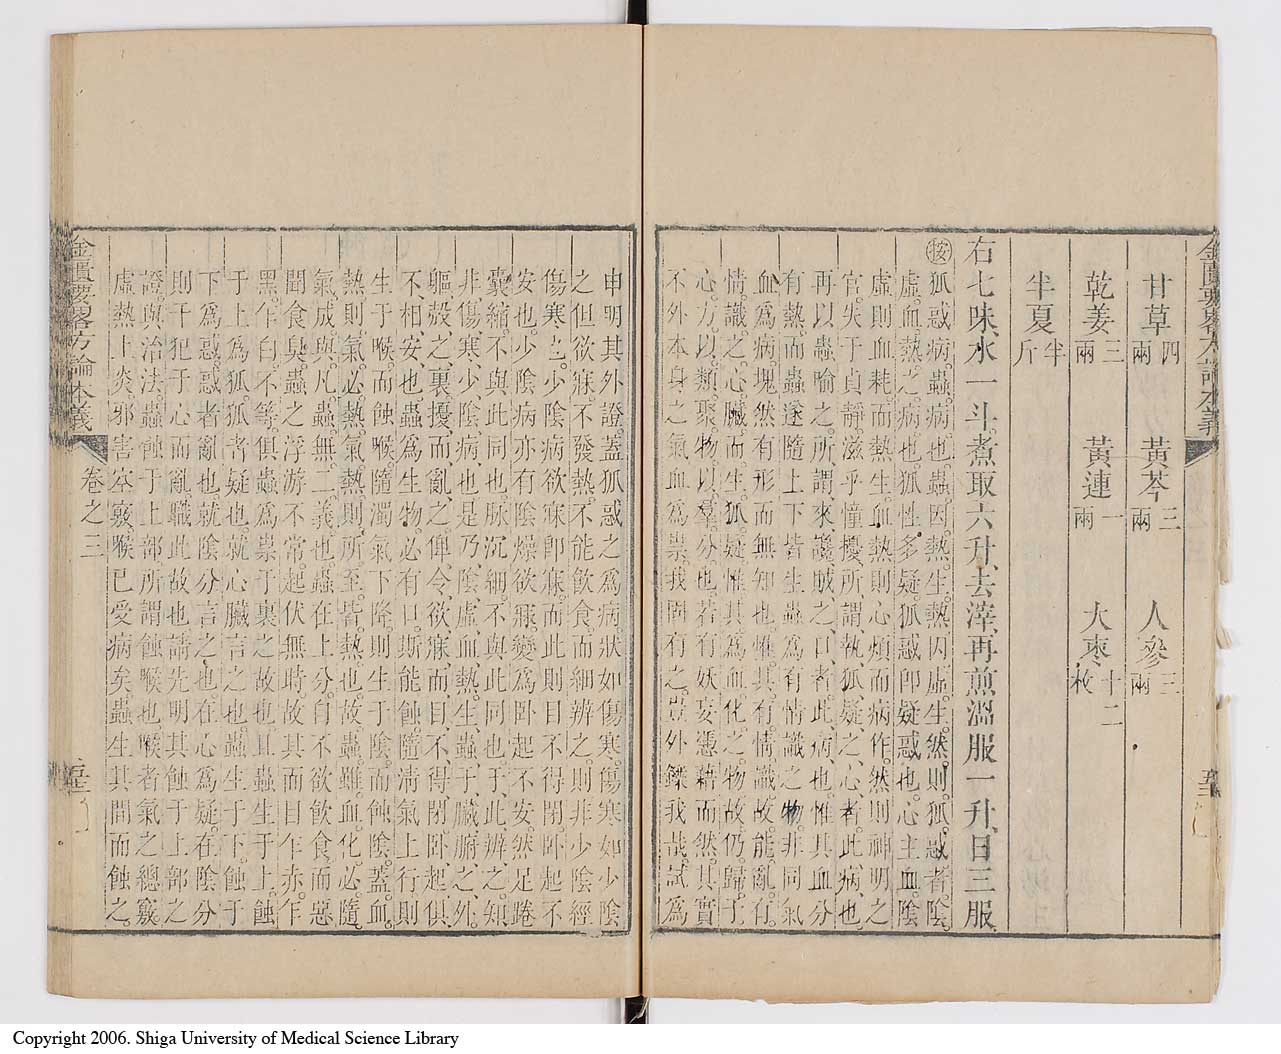 金匱要略方論本義
甘草四兩　黃芩三兩　人參三兩
乾姜三兩　黃連一兩　大棗十二枚
半夏半斤
右七味水一斗煮取六升去滓再煎溫服一升日三服
按狐惑病蟲病也蟲因熱生熱因虛生然則狐惑者陰
虛血熱之病也狐性多疑狐惑卽疑惑也心主血陰
虛則血耗而熱生血熱則心煩而病作然則神明之
官失于貞靜滋乎憧擾所謂執狐疑之心者此病也
再以蟲喻之所謂來讒賊之口者此病也惟其血分
有熱而蟲遂隨上下皆生蟲爲有情識之物非同氣
血爲病塊然有形而無知也惟其有情識故能亂有
情識之心臟而生狐疑惟其爲血化之物故仍歸于
心方以類聚物以羣分也若有妖妄憑藉而然其實
不外本身之氣血爲祟我固有之豈外鑠我哉試爲
申明其外證蓋狐惑之爲病狀如傷寒傷寒如少陰
之但欲寐不發熱不能飲食而細辨之則非少陰經
傷寒也少陰病欲寐卽寐而此則目不得閉臥起不
安也少陰病亦有陰燥欲寐變爲臥起不安然足踡
囊縮不與此同也脈沉細不與此同也于此辨之知
非傷寒少陰病也是乃陰虛血熱生蟲于臟腑之外
軀殼之裏擾而亂之俾令欲寐而目不得閉臥起俱
不相安也蟲爲生物必有口斯能蝕隨淸氣上行則
生于喉而蝕喉隨濁氣下降則生于陰而蝕陰蓋血
熱則氣必熱氣熱則所至皆熱也故蟲雖血化必隨
氣成與凡蟲無二義也蟲在上分自不欲飲食而惡
聞食臭蟲之浮游不常起伏無時故其面目乍赤乍
黑乍白不等俱蟲爲祟于裏之故也且蟲生于上蝕
于上爲狐狐者疑也就心臟言之也蟲生于下蝕于
下爲惑惑者亂也就陰分言之也在心爲疑在陰分
則干犯于心而亂職此故也請先明其蝕于上部之
證與治法蟲蝕于上部所謂蝕喉也喉者氣之總竅
虛熱上炎邪害空竅喉已受病矣蟲生其間而蝕之
金匱要略方論本義　卷之三
Copyright 2006. Shiga University of Medical Science Library